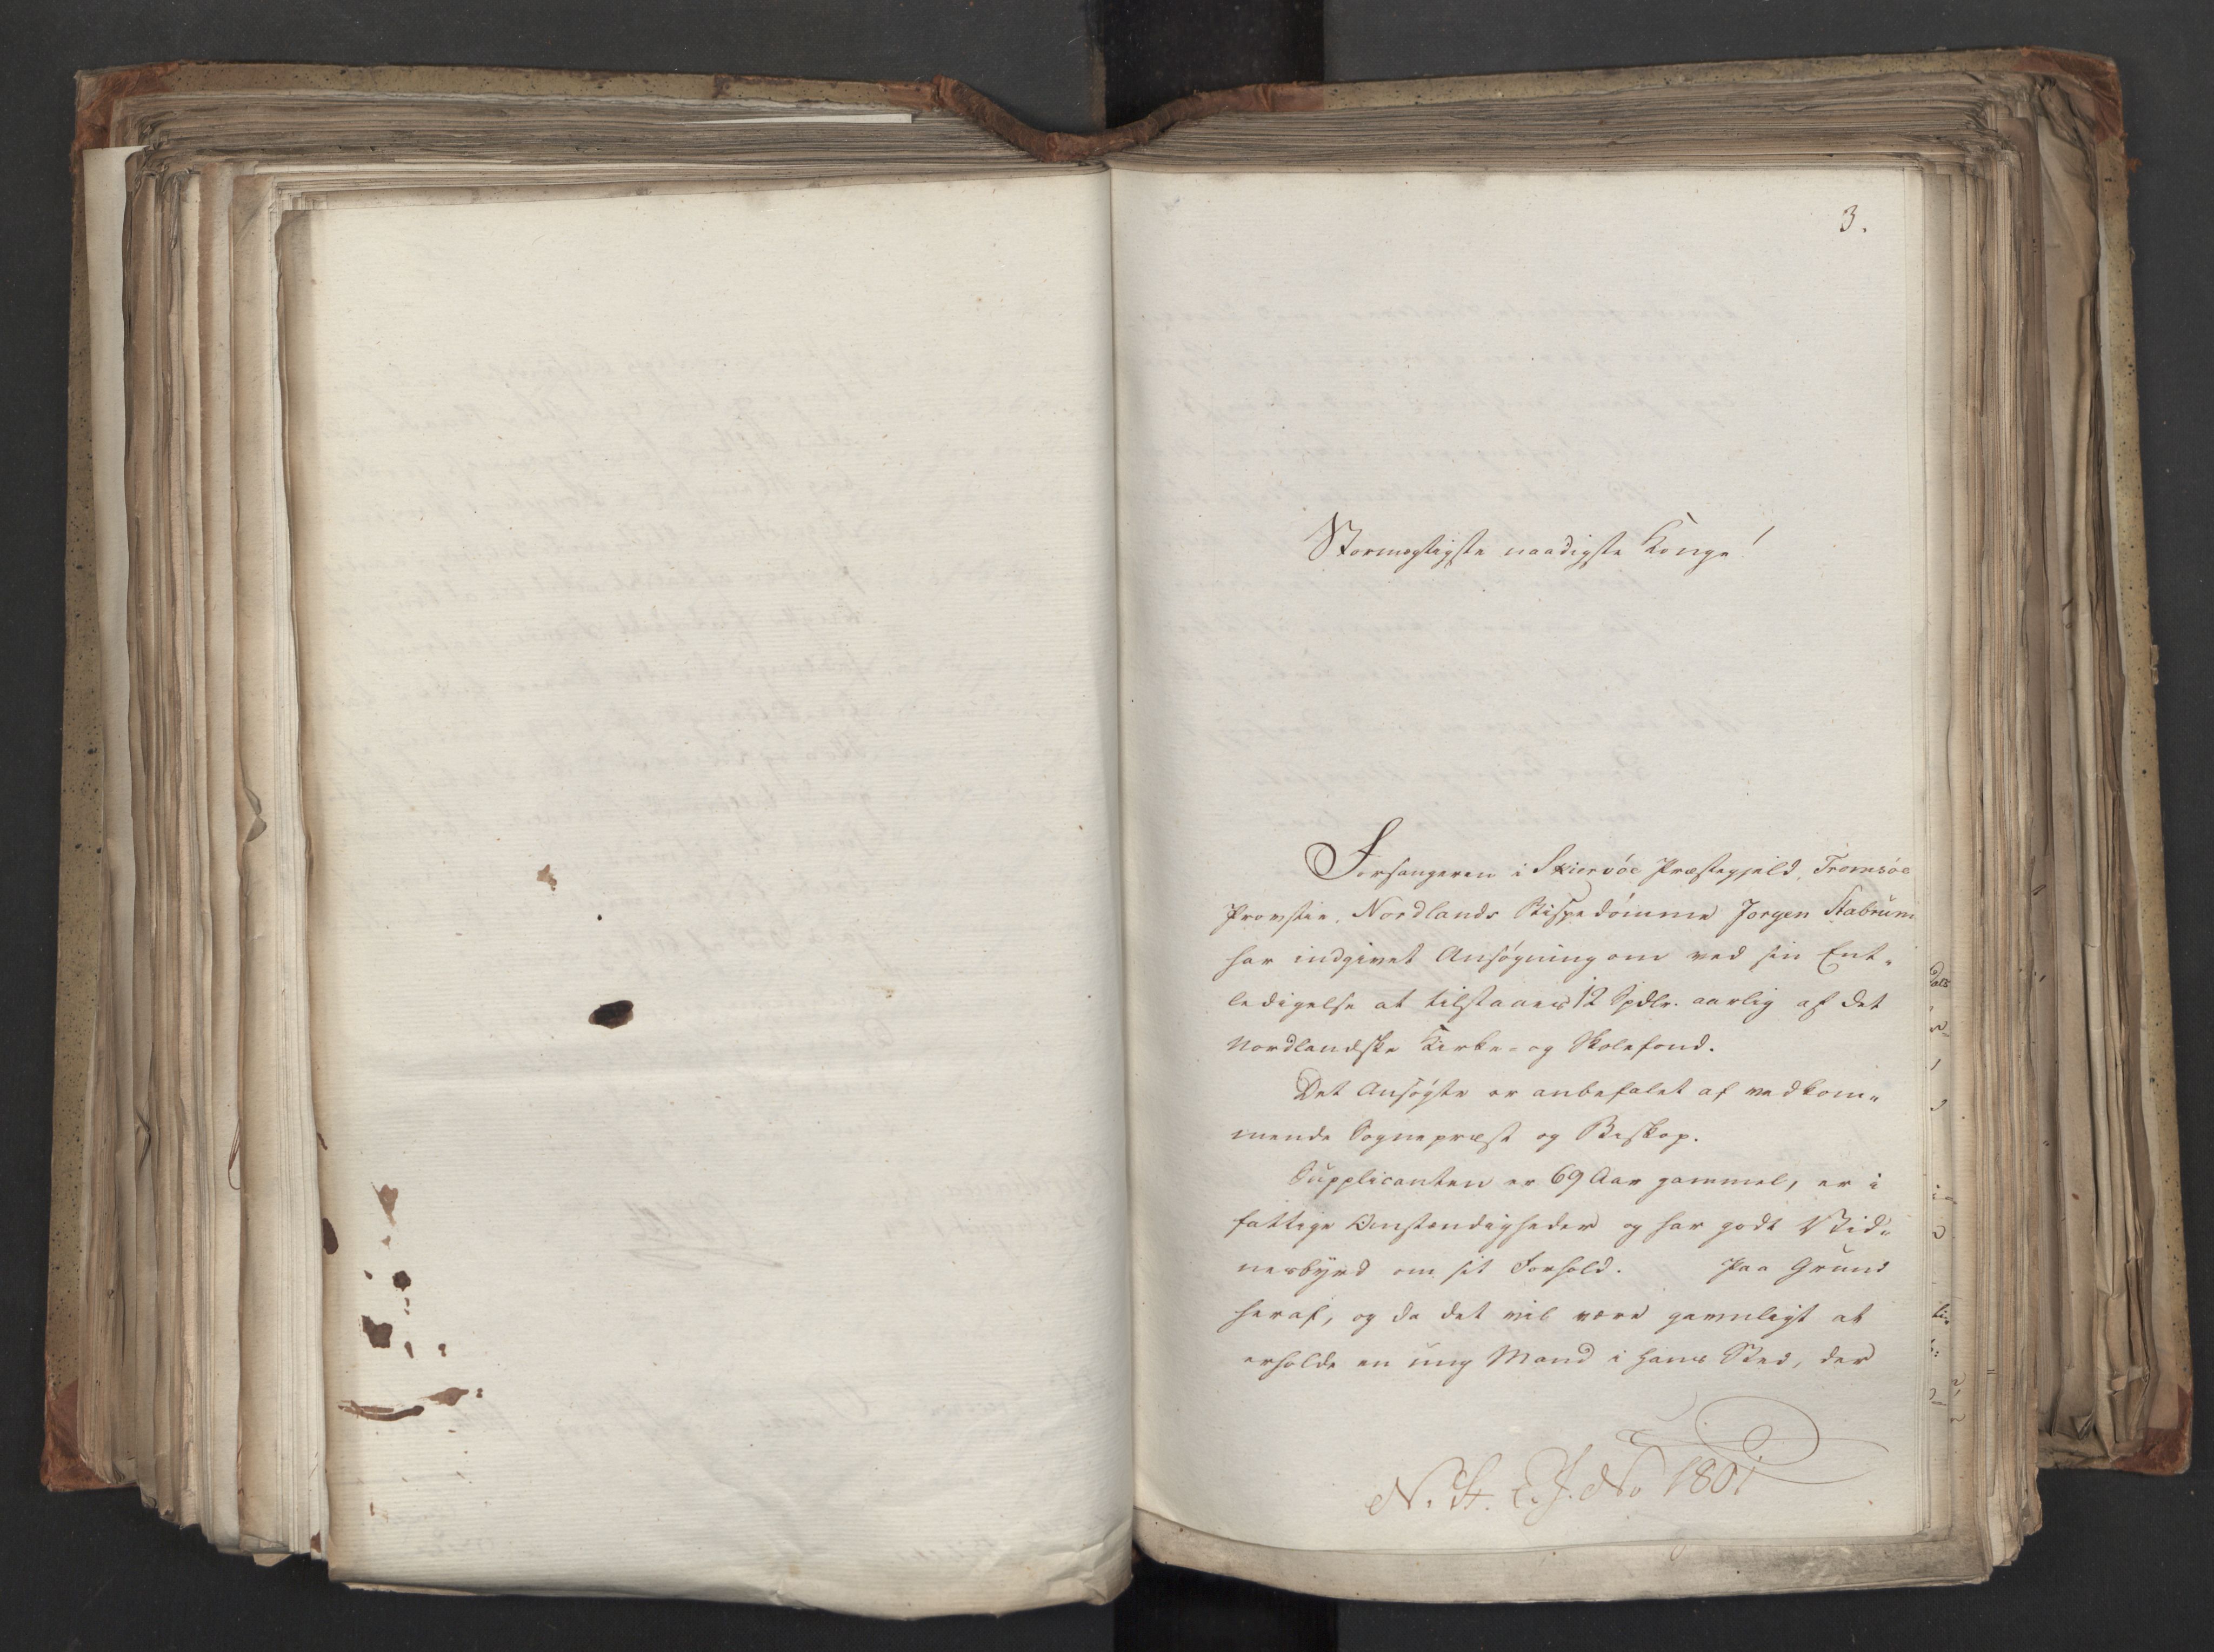 3.
Stormægtigste naadigste Konge!
Forsangeren i Skiervöe Præstegjeld, Tromsöe
Provstie, Nordlands Bispedömme Jorgen Stabrum
har indgivet Ansøgning om ved sin Ent-
ledigelse at tilstaaes 12 Spdlr. aarlig af det
Nordlandske Kirke- og Skolefond.
Det Ansøgte er anbefalet af vedkom-
mende Sognepræst og Biskop.
Supplicanten er 69 Aar gammel, er i
fattige Omstændigheder og har godt Vid-
nesbyrd om sit Forhold. Paa Grund
heraf, og da det vil være gavnligt at
erholde en ung Mand i hans Sted, der
N. St. E. J. No 1801